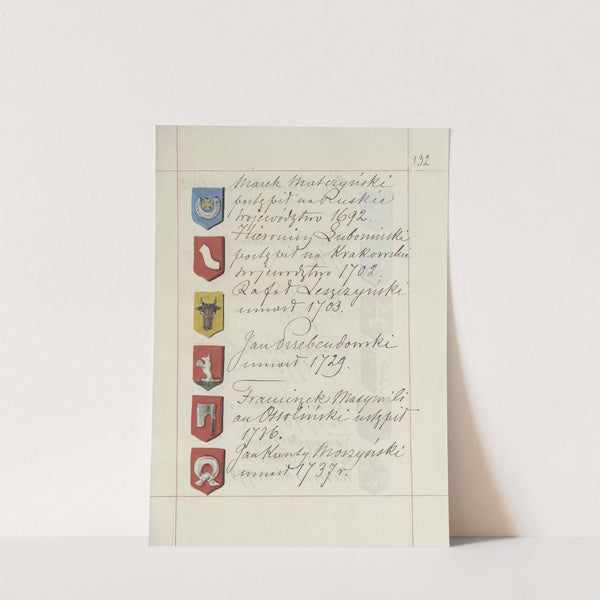 132
Marek Matczyński
postąpił na Ruskie
województwo 1692.
Hieronim Lubomirski
postąpił na Krakowskie
województwo 1702.
Rafał Leszczyński
umarł 1703.
Jan Przebendowski
umarł 1729.
Franciszek Maxymili
an Ossoliński ustąpił
1736.
Jan Kanty Moszyński
umarł 1737 r.